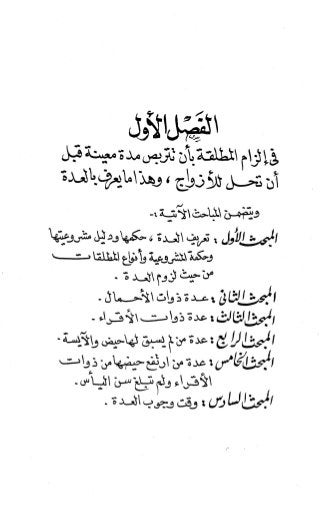 الفصل الأول
في إلزام المطلقة بأن تتربص مدة معينة قبل
أن تحل للأزواج ، وهذا ما يعرف بالعدة
ويتضمن المباحث الآتية :-
المبحث الأول : تعريف العدة ، حكمها ودليل مشروعيتها
وحكمة المشروعية وأنواع المطلقات
من حيث لزوم العدة .
المبحث الثاني : عدة ذوات الأحمال .
المبحث الثالث : عدة ذوات الأقراء .
المبحث الرابع : عدة من لم يسبق لها حيض والآيسة .
المبحث الخامس : عدة من ارتفع حيضها من ذوات
الأقراء ولم تبلغ سن اليأس .
المبحث السادس : وقت وجوب العدة .